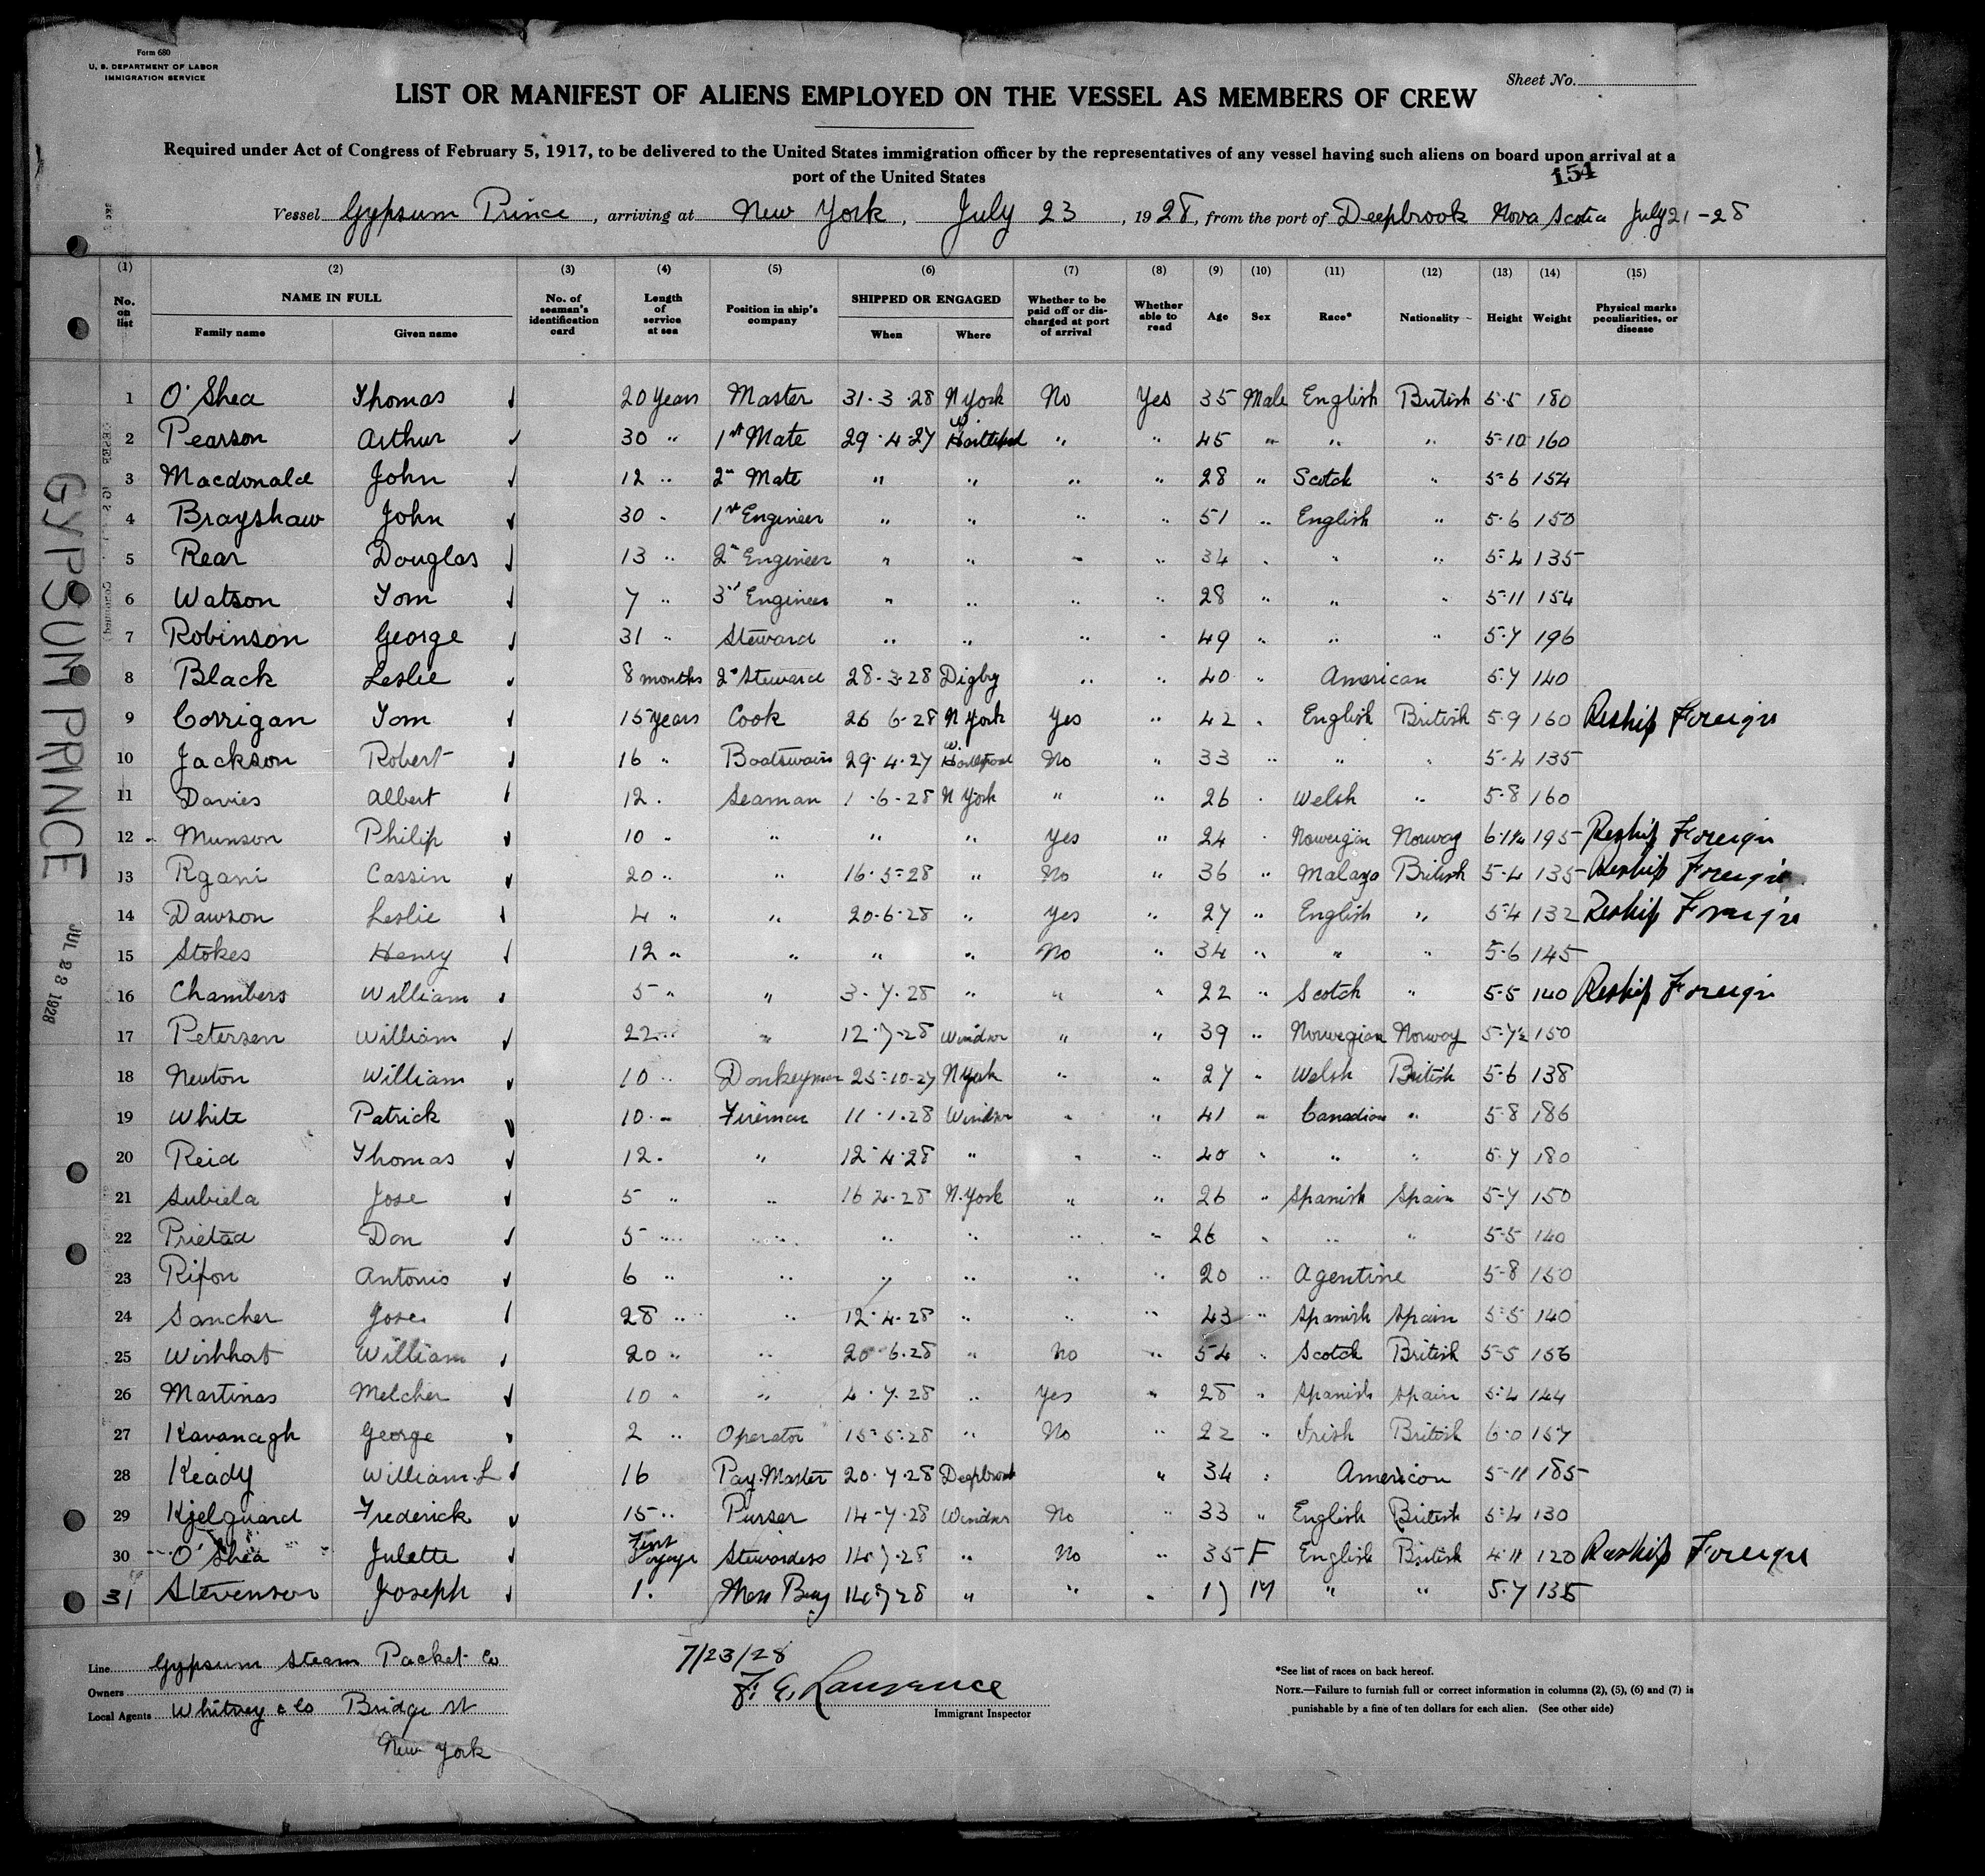 Form 680
U. S. DEPARTMENT OF LABOR
IMMIGRATION SERVICE
Sheet No.
LIST OR MANIFEST OF ALIENS EMPLOYED ON THE VESSEL AS MEMBERS OF CREW
Required under Act of Congress of February 5, 1917, to be delivered to the United States immigration officer by the representatives of any vessel having such aliens on board upon arrival at a
port of the United States
154
Vessel Gypsum Prince, arriving at New York, July 23, 1928, from the port of Deepbrook Nova Scotia July 21-28
(1) (2) (3) (4) (5) (6) (7) (8) (9) (10) (11) (12) (13) (14) (15)
No. on list NAME IN FULL Family name Given name No. of seaman's identification card Length of service at sea Position in ship's company SHIPPED OR ENGAGED When Where Whether to be paid off or discharged at port of arrival Whether able to read Age Sex Race* Nationality Height Weight Physical marks peculiarities, or disease
1 O'Shea Thomas 20 years Master 31-3-28 N York No Yes 35 Male English British 5-5 180
2 Pearson Arthur 30 " 1st Mate 29-4-27 " " 45 " " " 5-10 160
3 Macdonald John 12 " 2n Mate " " " " 28 " Scotch " 5-6 154
4 Brayshaw John 30 " 1st Engineer " " " " 51 " English " 5-6 150
5 Rear Douglas 13 " 2n Engineer " " " " 34 " " " 5-4 135
6 Watson Tom 7 " 3rd Engineer " " " " 28 " " " 5-11 154
7 Robinson George 31 " Steward " " " " 49 " " " 5-7 196
8 Black Leslie 8 months 2n Steward 28-3-28 Digby " " 40 " American 5-7 140
9 Corrigan Tom 15 years Cook 26 6-28 N York Yes " 42 " English British 5-9 160 Reship Foreign
10 Jackson Robert 16 " Boatswain 29-4-27 No " 33 " " " 5-4 135
11 Davies Albert 12 " Seaman 1-6-28 N York " " 26 " Welsh " 5-8 160
12 Munson Philip 10 " " " " Yes " 24 " Norwegian Norway 195 Reship Foreign
13 Rgani Cassin 20 " " 16-5-28 " No " 36 " Malaya British 5-4 135 Reship Foreign
14 Dawson Leslie 4 " " 20-6-28 " Yes " 27 " English " 5-4 132 Reship Foreign
15 Stokes Henry 12 " " " " No " 34 " " " 5-6 145
16 Chambers William 5 " " 3-7-28 " " " 22 " Scotch " 5-5 140 Reship Foreign
17 Petersen William 22 " " 12-7-28 Windsor " " 39 " Norwegian Norway 5-7½ 150
18 Newton William 10 " Donkeyman 25-10-27 N York " " 27 " Welsh British 5-6 138
19 White Patrick 10 " Fireman 11-1-28 Windsor " " 41 " Canadian " 5-8 186
20 Reid Thomas 12 " " 12-4-28 " " " 40 " " " 5-7 180
21 Subiela Jose 5 " " 16 4-28 N. York " " 26 " Spanish Spain 5-7 150
22 Prietad Don 5 " " " " " " 26 " " " 5-5 140
23 Rifon Antonio 6 " " " " " " 20 " Agentine 5-8 150
24 Sancher Jose 28 " " 12-4-28 " " " 43 " Spanish Spain 5-5 140
25 Wishhart William 20 " " 20-6-28 " No " 54 " Scotch British 5-5 156
26 Martinas Melcher 10 " " 4-7-28 " Yes " 28 " Spanish Spain 5-4 144
27 Kavanagh George 2 " Operator 15-5-28 " No " 22 " Irish British 6-0 157
28 Keady William L 16 Pay Master 20-7-28 Deepbrook " 34 " American 5-11 185
29 Kjelguard Frederick 15 " Purser 14-7-28 Windsor No " 33 " English British 5-4 130
30 O'Shea Julette First Voyage Stewardess 14-7-28 " No " 35 F English British 4-11 120 Reship Foreign
31 Stevenson Joseph 1. Mess Boy 14-7-28 " " " 17 M " " 5-7 135
GYPSUM PRINCE
JUL 23 1928
Line Gypsum Steam Packet Co
Owners
Local Agents Whitney & Co Bridge St
New York
7/23/28
F. E. Lawrence
Immigrant Inspector
*See list of races on back hereof.
NOTE.—Failure to furnish full or correct information in columns (2), (5), (6) and (7) is
punishable by a fine of ten dollars for each alien. (See other side)